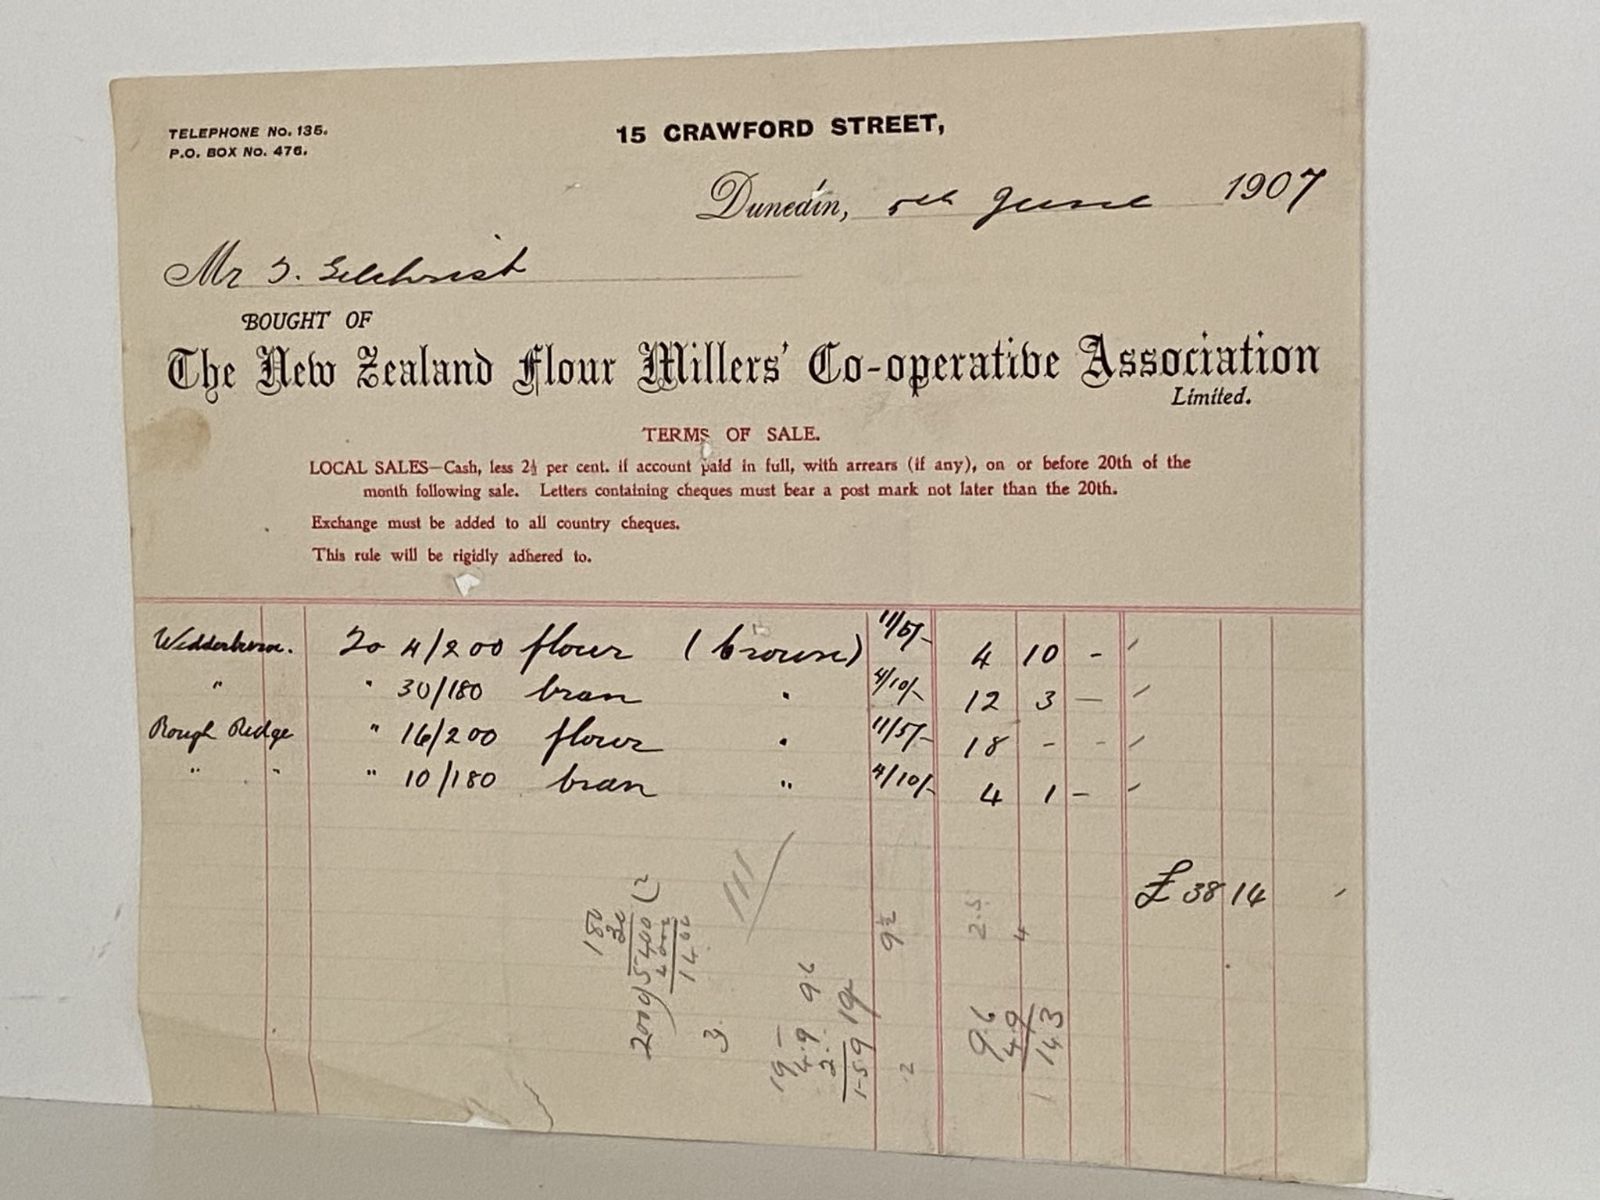 TELEPHONE No. 135.
P.O. BOX No. 476.
15 CRAWFORD STREET,
Dunedin, 5th June 1907
Mr T. Gilchrist
BOUGHT OF
The New Zealand Flour Millers' Co-operative Association
Limited.
TERMS OF SALE.
LOCAL SALES—Cash, less 2½ per cent. if account paid in full, with arrears (if any), on or before 20th of the
month following sale. Letters containing cheques must bear a post mark not later than the 20th.
Exchange must be added to all country cheques.
This rule will be rigidly adhered to.
Wedderburn. To 4/200 flour (brown) 11/5/- 4 10 -
" " 30/180 bran " 4/10/- 12 3 -
Rough Ridge " 16/200 flour " 11/5/- 18 - -
" " " 10/180 bran " 4/10/- 4 1 -
£ 38 14
180
30
2000)5400(2
4000
1400
3
111/
19 -
4.9
2.
1-5.9
9.6
19
9½
2
2.5
4
9.6
4.9
14.3